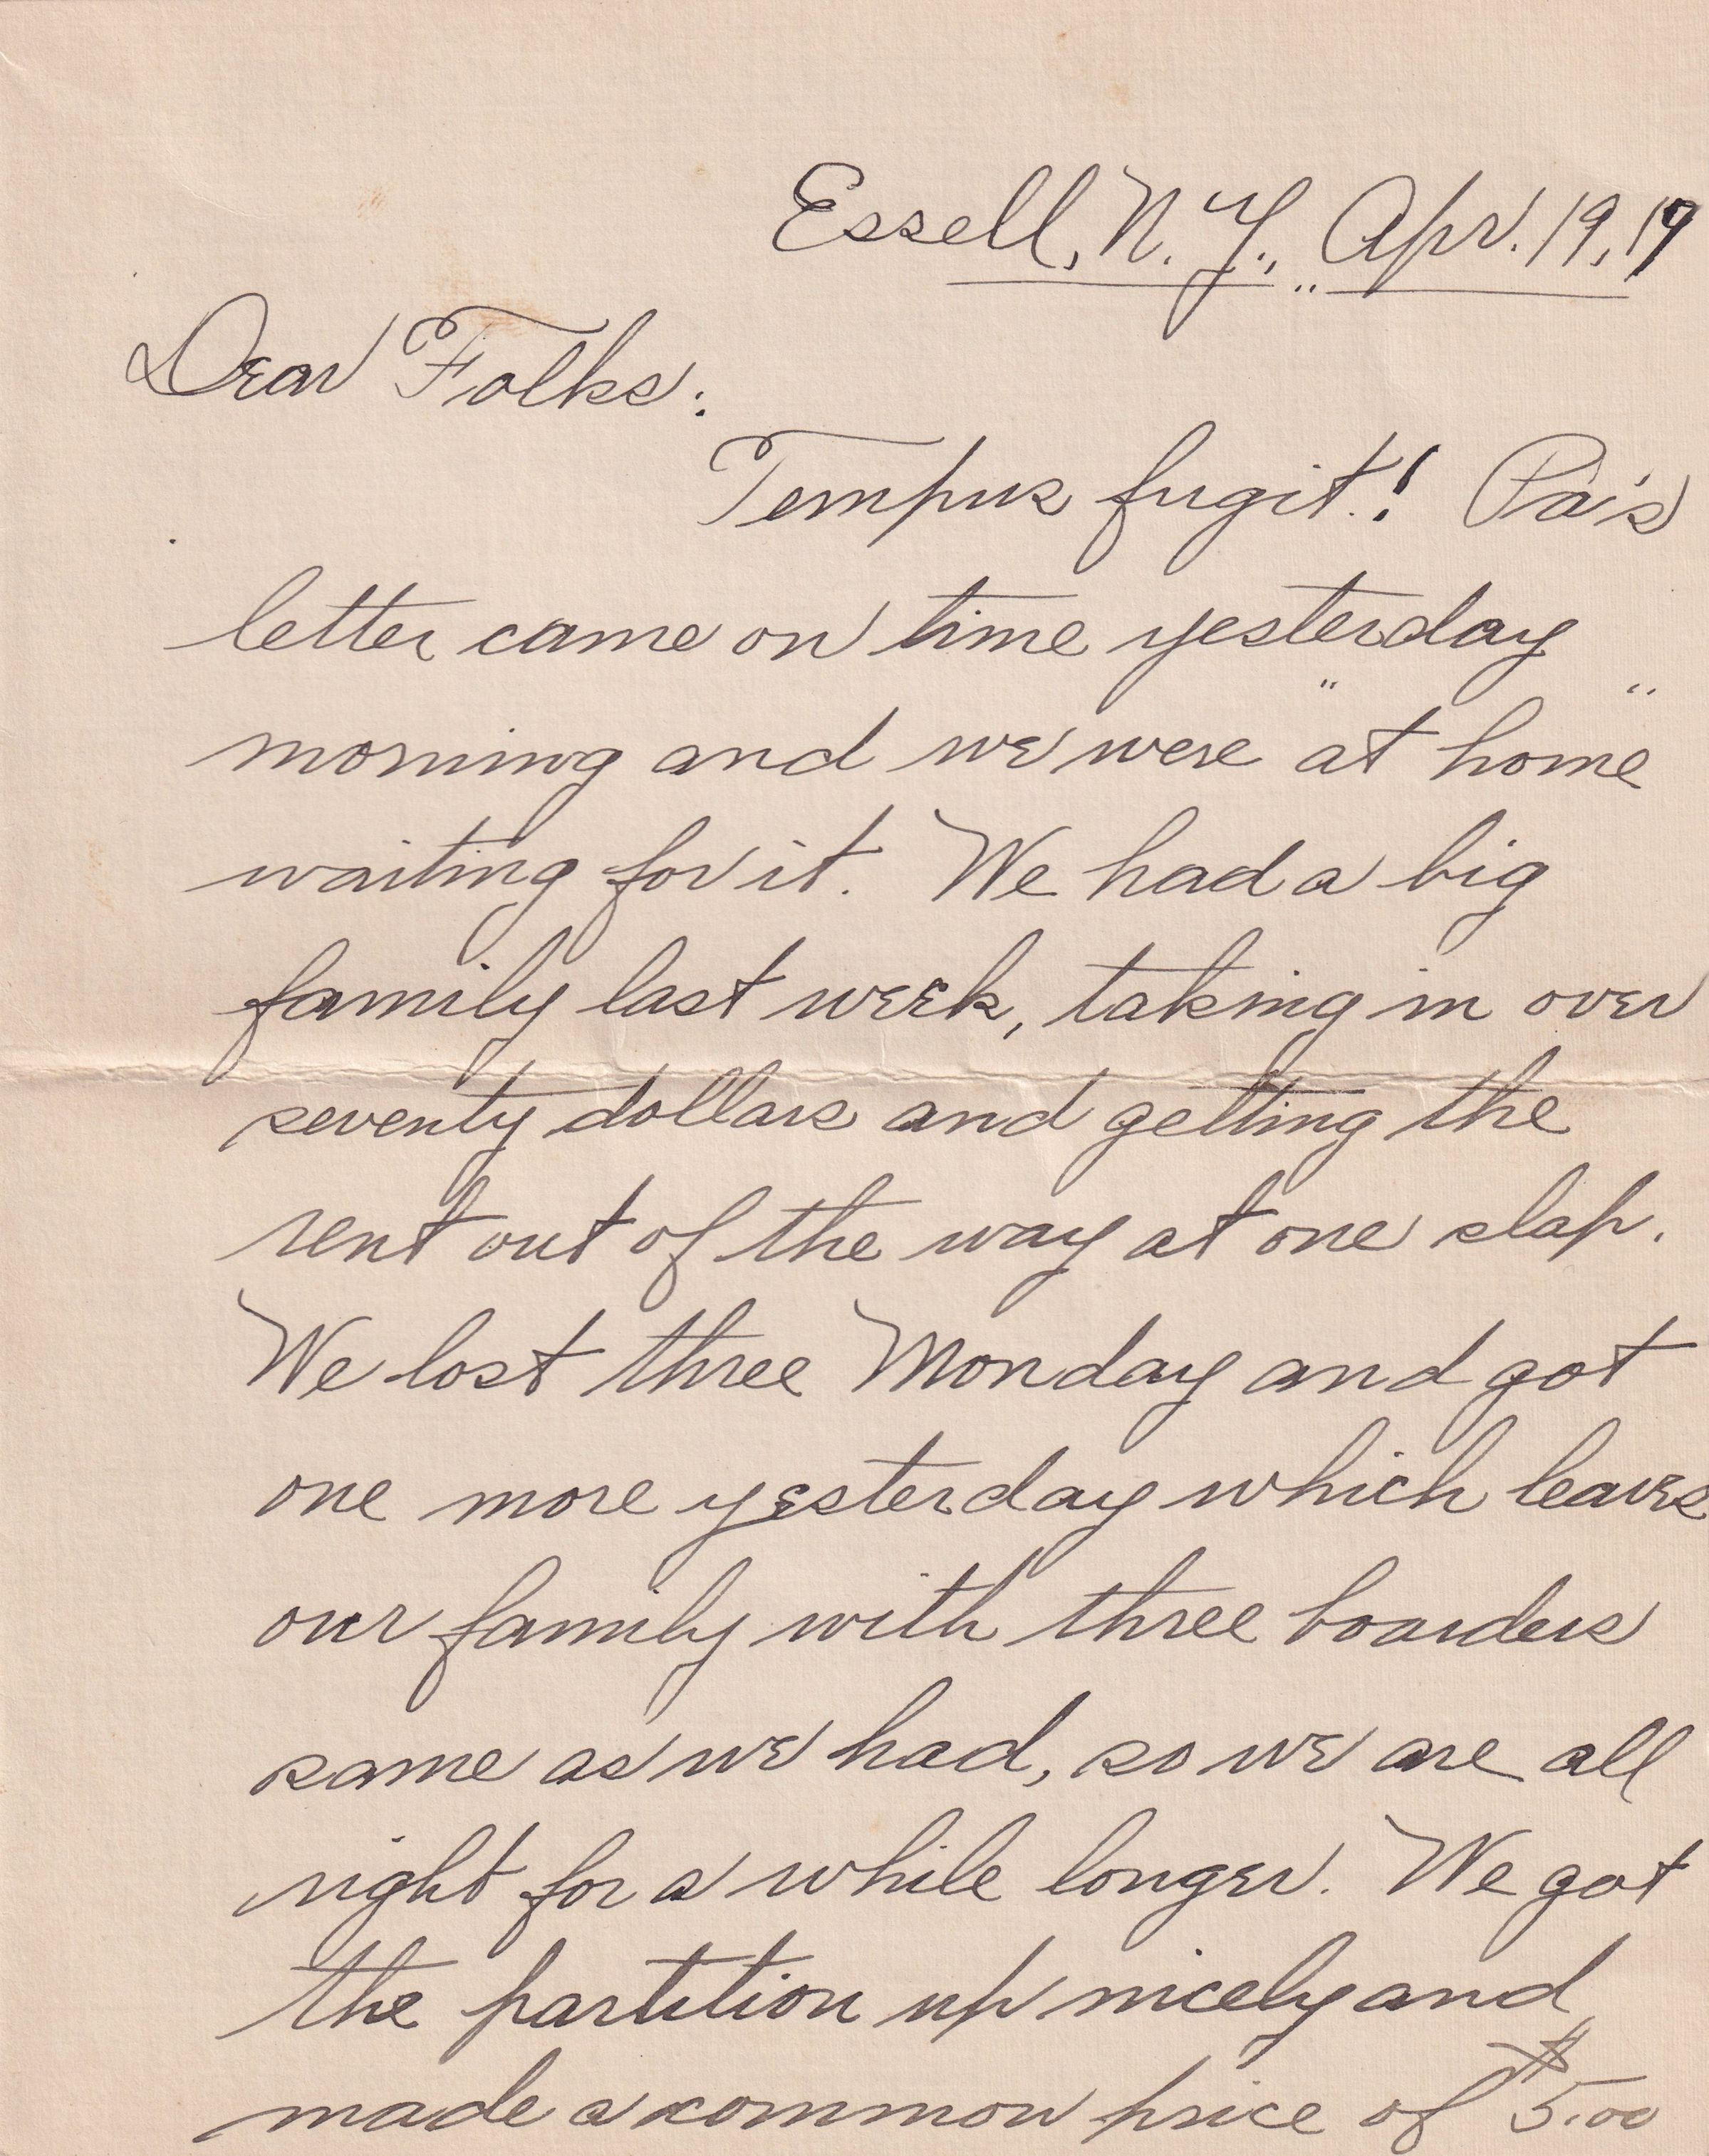 Essell, N.Y., Apr. 19, 19
Dear Folks:
Tempus fugit! Pa's
letter came on time yesterday
morning and we were "at home"
waiting for it. We had a big
family last week, taking in over
seventy dollars and getting the
rent out of the way at one slap.
We lost three Monday and got
one more yesterday which leaves
our family with three boarders
same as we had, so we are all
right for a while longer. We got
the partition up nicely and
made a common price of $5.00